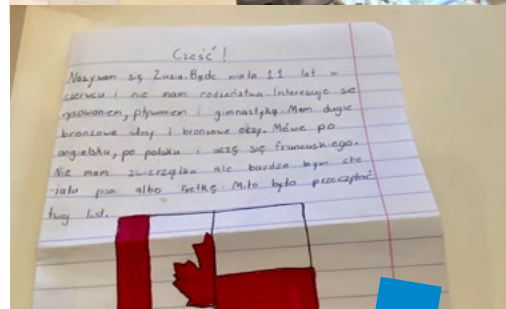 Cześć!
Nazywam się Zuzia. Będe miała 11 lat w
czerwcu i nie mam rodzeństwa. Interesuje się
rysowaniem, pływaniem i gimnastyką. Mam długie
bronzowe włosy i bronzowe oczy. Mówe po
angielsku, po polsku i uczę się francuskiego.
Nie mam zwierzątka ale bardzo bym chc
-iała psa albo fretkę. Miło było przeczytać
twój list.